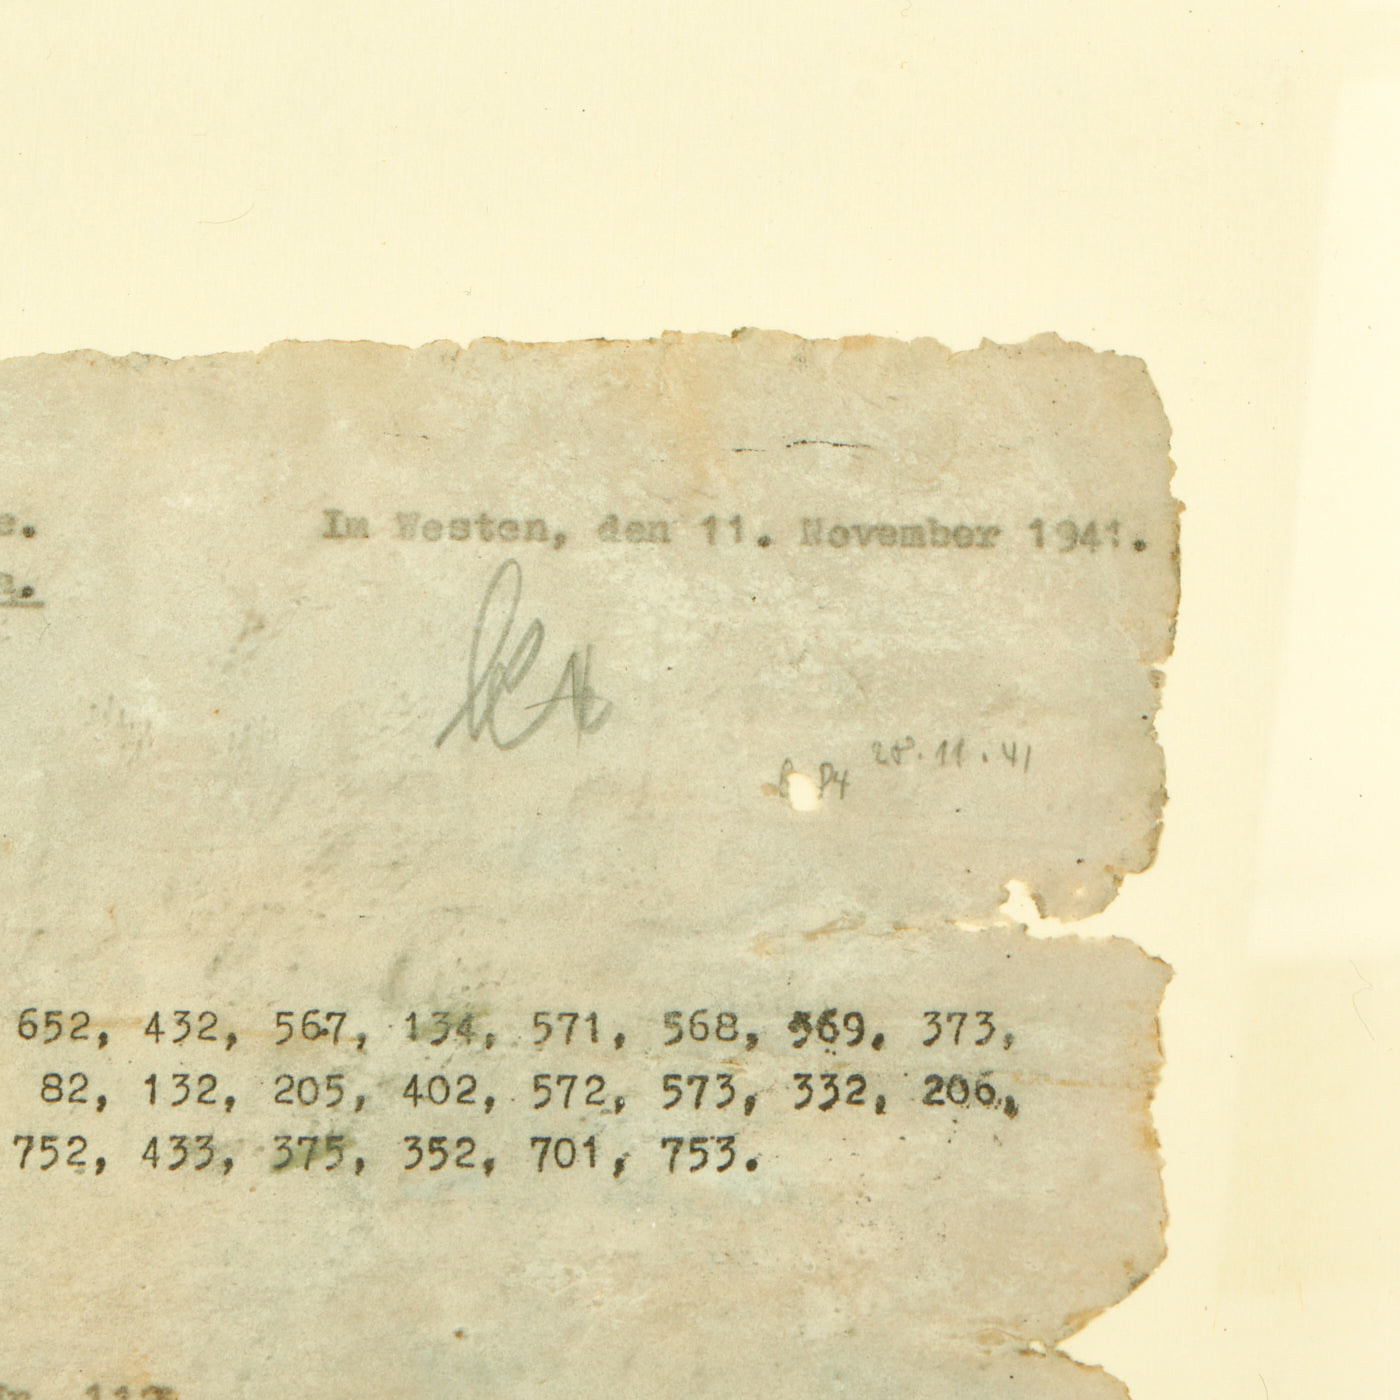 e. Im Westen, den 11. November 1941.
28.11.41
84
652, 432, 567, 134, 571, 568, 569, 373,
82, 132, 205, 402, 572, 573, 332, 206,
752, 433, 375, 352, 701, 753.